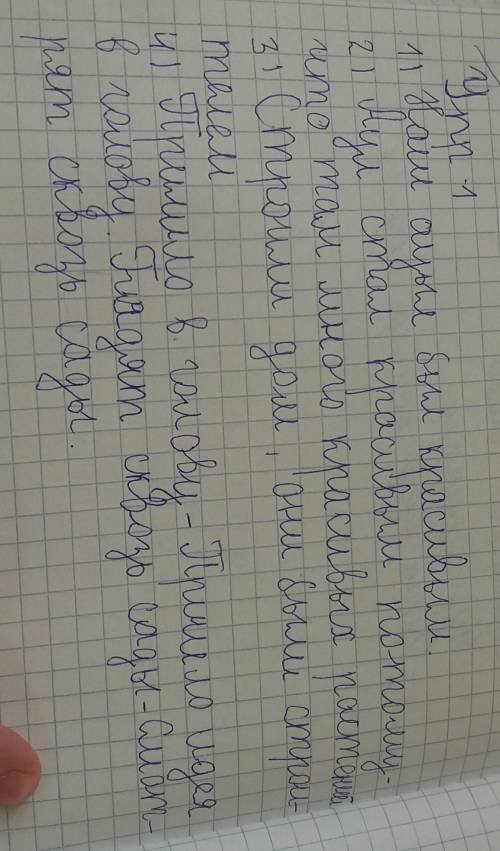 Упр 1
1) Наш аул был красивым.
2) Аул стал красивым потому-
что там много красивых растений
3) Строили дом, они были отры-
талем
4) Пришло в голову - Пришло идея
в голову. Глядят сквозь сады - Смот-
рят сквозь сады.